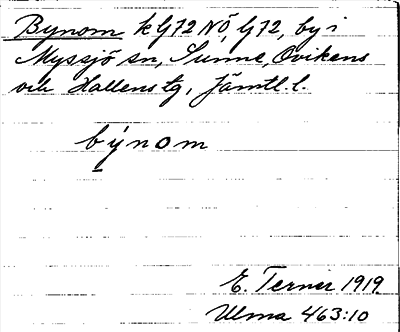 Bynom k G72 NÖ, G72, by i
Myssjö sn, Sunne, Ovikens
och Hallens tg, Jämtl. l.
býnom
E. Terner 1919
Ulma 463:10